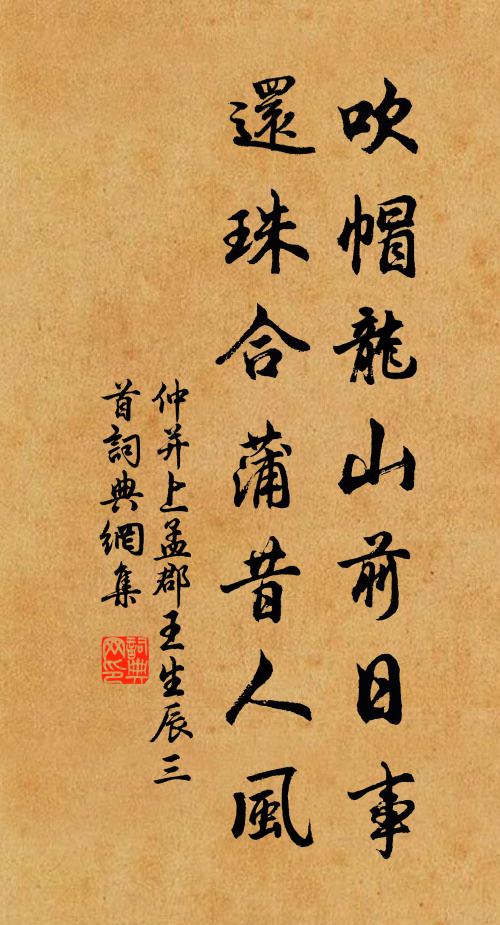 吹帽龍山前日事
還珠合蒲昔人風
仲并上孟郡王生辰三
首詞典網集
詞典
网印